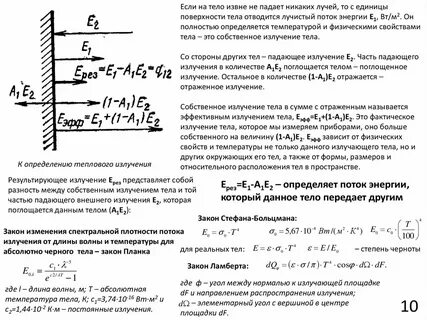 E₂
E₁
Eрез=E₁-A₁E₂=q₁₂
A₁E₂
(1-A₁)E₂
Eэфф=E₁+(1-A₁)E₂
К определению теплового излучения
Если на тело извне не падает никаких лучей, то с единицы
поверхности тела отводится лучистый поток энергии E₁, Вт/м². Он
полностью определяется температурой и физическими свойствами
тела – это собственное излучение тела.
Со стороны других тел – падающее излучение E₂. Часть падающего
излучения в количестве A₁E₂ поглощается телом – поглощенное
излучение. Остальное в количестве (1-A₁)E₂ отражается –
отраженное излучение.
Собственное излучение тела в сумме с отраженным называется
эффективным излучением тела, Eэфф=E₁+(1-A₁)E₂. Это фактическое
излучение тела, которое мы измеряем приборами, оно больше
собственного на величину (1-A₁)E₂. Eэфф зависит от физических
свойств и температуры не только данного излучающего тела, но и
других окружающих его тел, а также от формы, размеров и
относительного расположения тел в пространстве.
Результирующее излучение Eрез представляет собой
разность между собственным излучением тела и той
частью падающего внешнего излучения E₂, которая
поглощается данным телом (A₁E₂):
Eрез=E₁-A₁E₂ – определяет поток энергии,
который данное тело передает другим
Закон изменения спектральной плотности потока
излучения от длины волны и температуры для
абсолютно черного тела – закон Планка
где l – длина волны, м; T – абсолютная
температура тела, К; c₁=3,74·10⁻¹⁶ Вт·м² и
c₂=1,44·10⁻² К·м – постоянные излучения.
Закон Стефана-Больцмана:
E₀ = σ₀·T⁴ σ₀ = 5,67·10⁻⁸ Вт/(м²·К⁴) E₀ = c₀·(T/100)⁴
для реальных тел: E = ε·σ₀·T⁴ ε = E/E₀ – степень черноты
Закон Ламберта:
где φ – угол между нормалью к излучающей площадке
dF и направлением распространения излучения;
dΩ – элементарный угол с вершиной в центре
площадки dF.
10